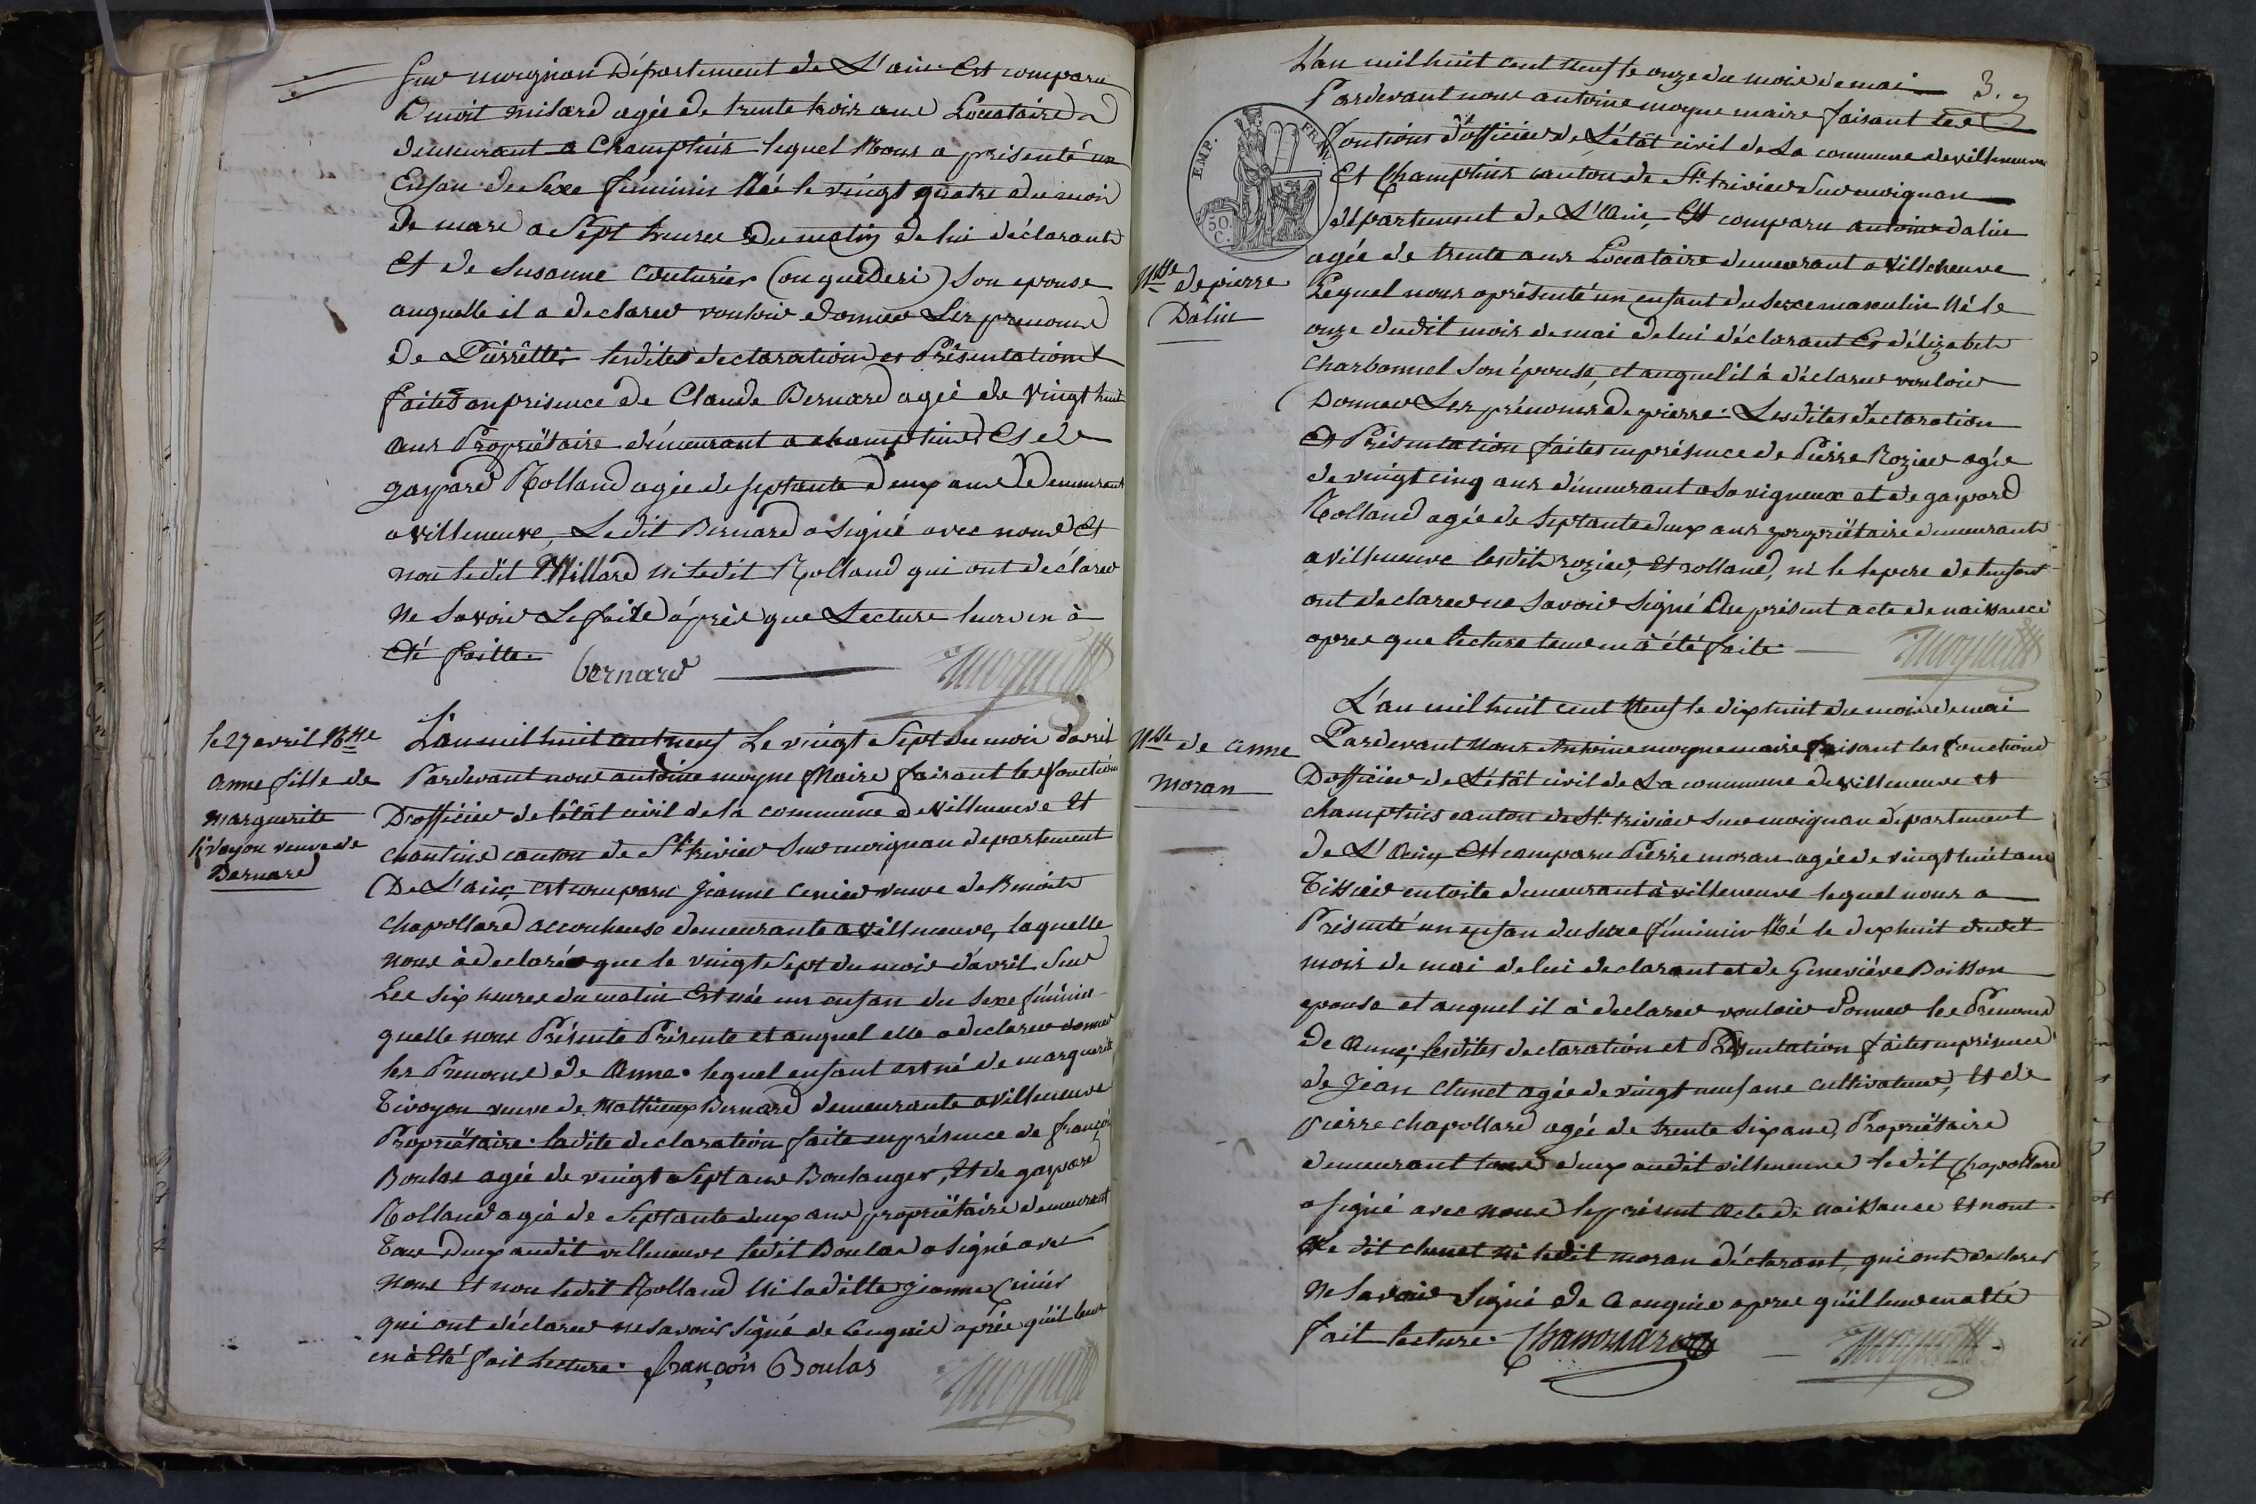 Sur moignan Département de L'ain. Est comparu
Benoit milard agée de trente trois ans Locataire
demeurant a Champtins lequel Nous a présenté un
Enfan de Sexe féminin Né le vingt quatre du mois
de mars a Sept heures du matin de lui déclarant
Et de Susanne couturier (ou guederi) Son epouse
auquelle il a declarer vouloir donner Les prenoms
de Pierrette. lesdites declaration et Présentation
faites en présence de Claude Bernard agée de Vingt huit
ans Propriétaire demeurant a champtins Et de
gaspard Rolland agée de septante deux ans Demeurant
a Villeneuve, Le dit Bernard a Signé avec nous Et
non ledit Millard ni ledit Rolland qui ont déclarer
Ne Savoir Le faire après que Lecture leurs en à
Eté faitte.
bernard
le 27 avril Nsse
anne fille de
marguerite
tivoyon veuve de
Bernard
L'an mil huit cent neuf Le vingt Sept du mois d'avril
Pardevant nous antoine moyne Maire faisant les fonction
D'officier de l'état civil de la commune de villeneuve Et
chantins canton de St. trivier Sur moignan departement
De L'ain, est comparu Jeanne cerier veuve de Benoit
chapollard accoucheuse demeurante a Villeneuve, laquelle
nous à declaré que le vingt Sept du mois d'avril Sur
Les six heures du matin est née un enfan du Sexe féminin
quelle nous Présente Présente et auquel elle a declarer donner
les Prenoms de Anne. lequel enfant est né de marguerite
Tivoyon veuve de Mathieux Bernard demeurante a Villeneuve
Propriétaire. ladite declaration faite en présence de françois
Boulas agée de vingt Sept ans Boulanger, Et de gaspard
Rolland agée de Septante deux ans propriétaire demeurant
Tous Deux audit villeneuve ledit Boulas a Signé avec
nous Et non ledit Rolland Ni laditte Jeanne Cerier
qui ont déclarer ne savoir Signé de Cenquis après qu'il leur
en à Eté fait Lecture. françois Boulas
3.
EMP. FRAN.
50. C.
L'an mil huit cent Neuf le onze du mois de mai
Pardevant nous antoine moyne maire faisant les
fontions d'officier de L'état civil de La commune de villeneuve
Et Champtins canton de St. trivier Sur moignan
département de L'Ain, Est comparu antoine dalin
agée de trente ans Locataire demeurant a Villeneuve
Nsse de pierre
Dalin
Lequel nous a présenté un enfant du sexe masculin Né le
onze dudit mois de mai de lui déclarant Et d'élizabet
charbonnel Son épouse, et auquel il à déclarer vouloir
Donner Les prénoms de pierre. Lesdites declaration
Et Présentation faites en présence de Pierre Rozier agée
de vingt cinq ans demeurant a Savigneux et de gaspard
Rolland agée de Septante deux ans propriétaire demeurant
a Villeneuve lesdits rozier, Et rolland, ni le le pere de lenfant
ont declarer ne Savoir Signé Au présent acte de naissance
apres que lecture leur en à été faite.
Nsse de anne
Moran
L'an mil huit cent Neuf le dix huit du mois de mai
Pardevant Nous Antoine moyne maire faisant les fonctions
D'officier de L'état civil de La commune de villeneuve et
champtins canton de St. trivier Sur moignan departement
de L'Ain, Est comparu Pierre moran agée de vingt huit ans
Tissier en toile demeurant à villeneuve lequel nous a
Présenté un enfan du sexe féminin Né le dix huit dudit
mois de mai de lui declarant et de Geneviéve Boisson
epouse et auquel il à declarer vouloir Donner les Prenoms
de anne, lesdites declaration et Présentation faites en présence
de Jean Clunet agée de vingt neuf ans cultivateur, Et de
pierre chapollard agée de trente Six ans, Propriétaire
demeurant tous deux audit villeneuve ledit Chapollard
a signé avec nous le présent Acte de naissance Et non
Le dit clunet ni ledit moran déclarant, qui ont declarer
Ne Savoir Signé de Cenquis apres qu'il leur en a été
fait lecture.